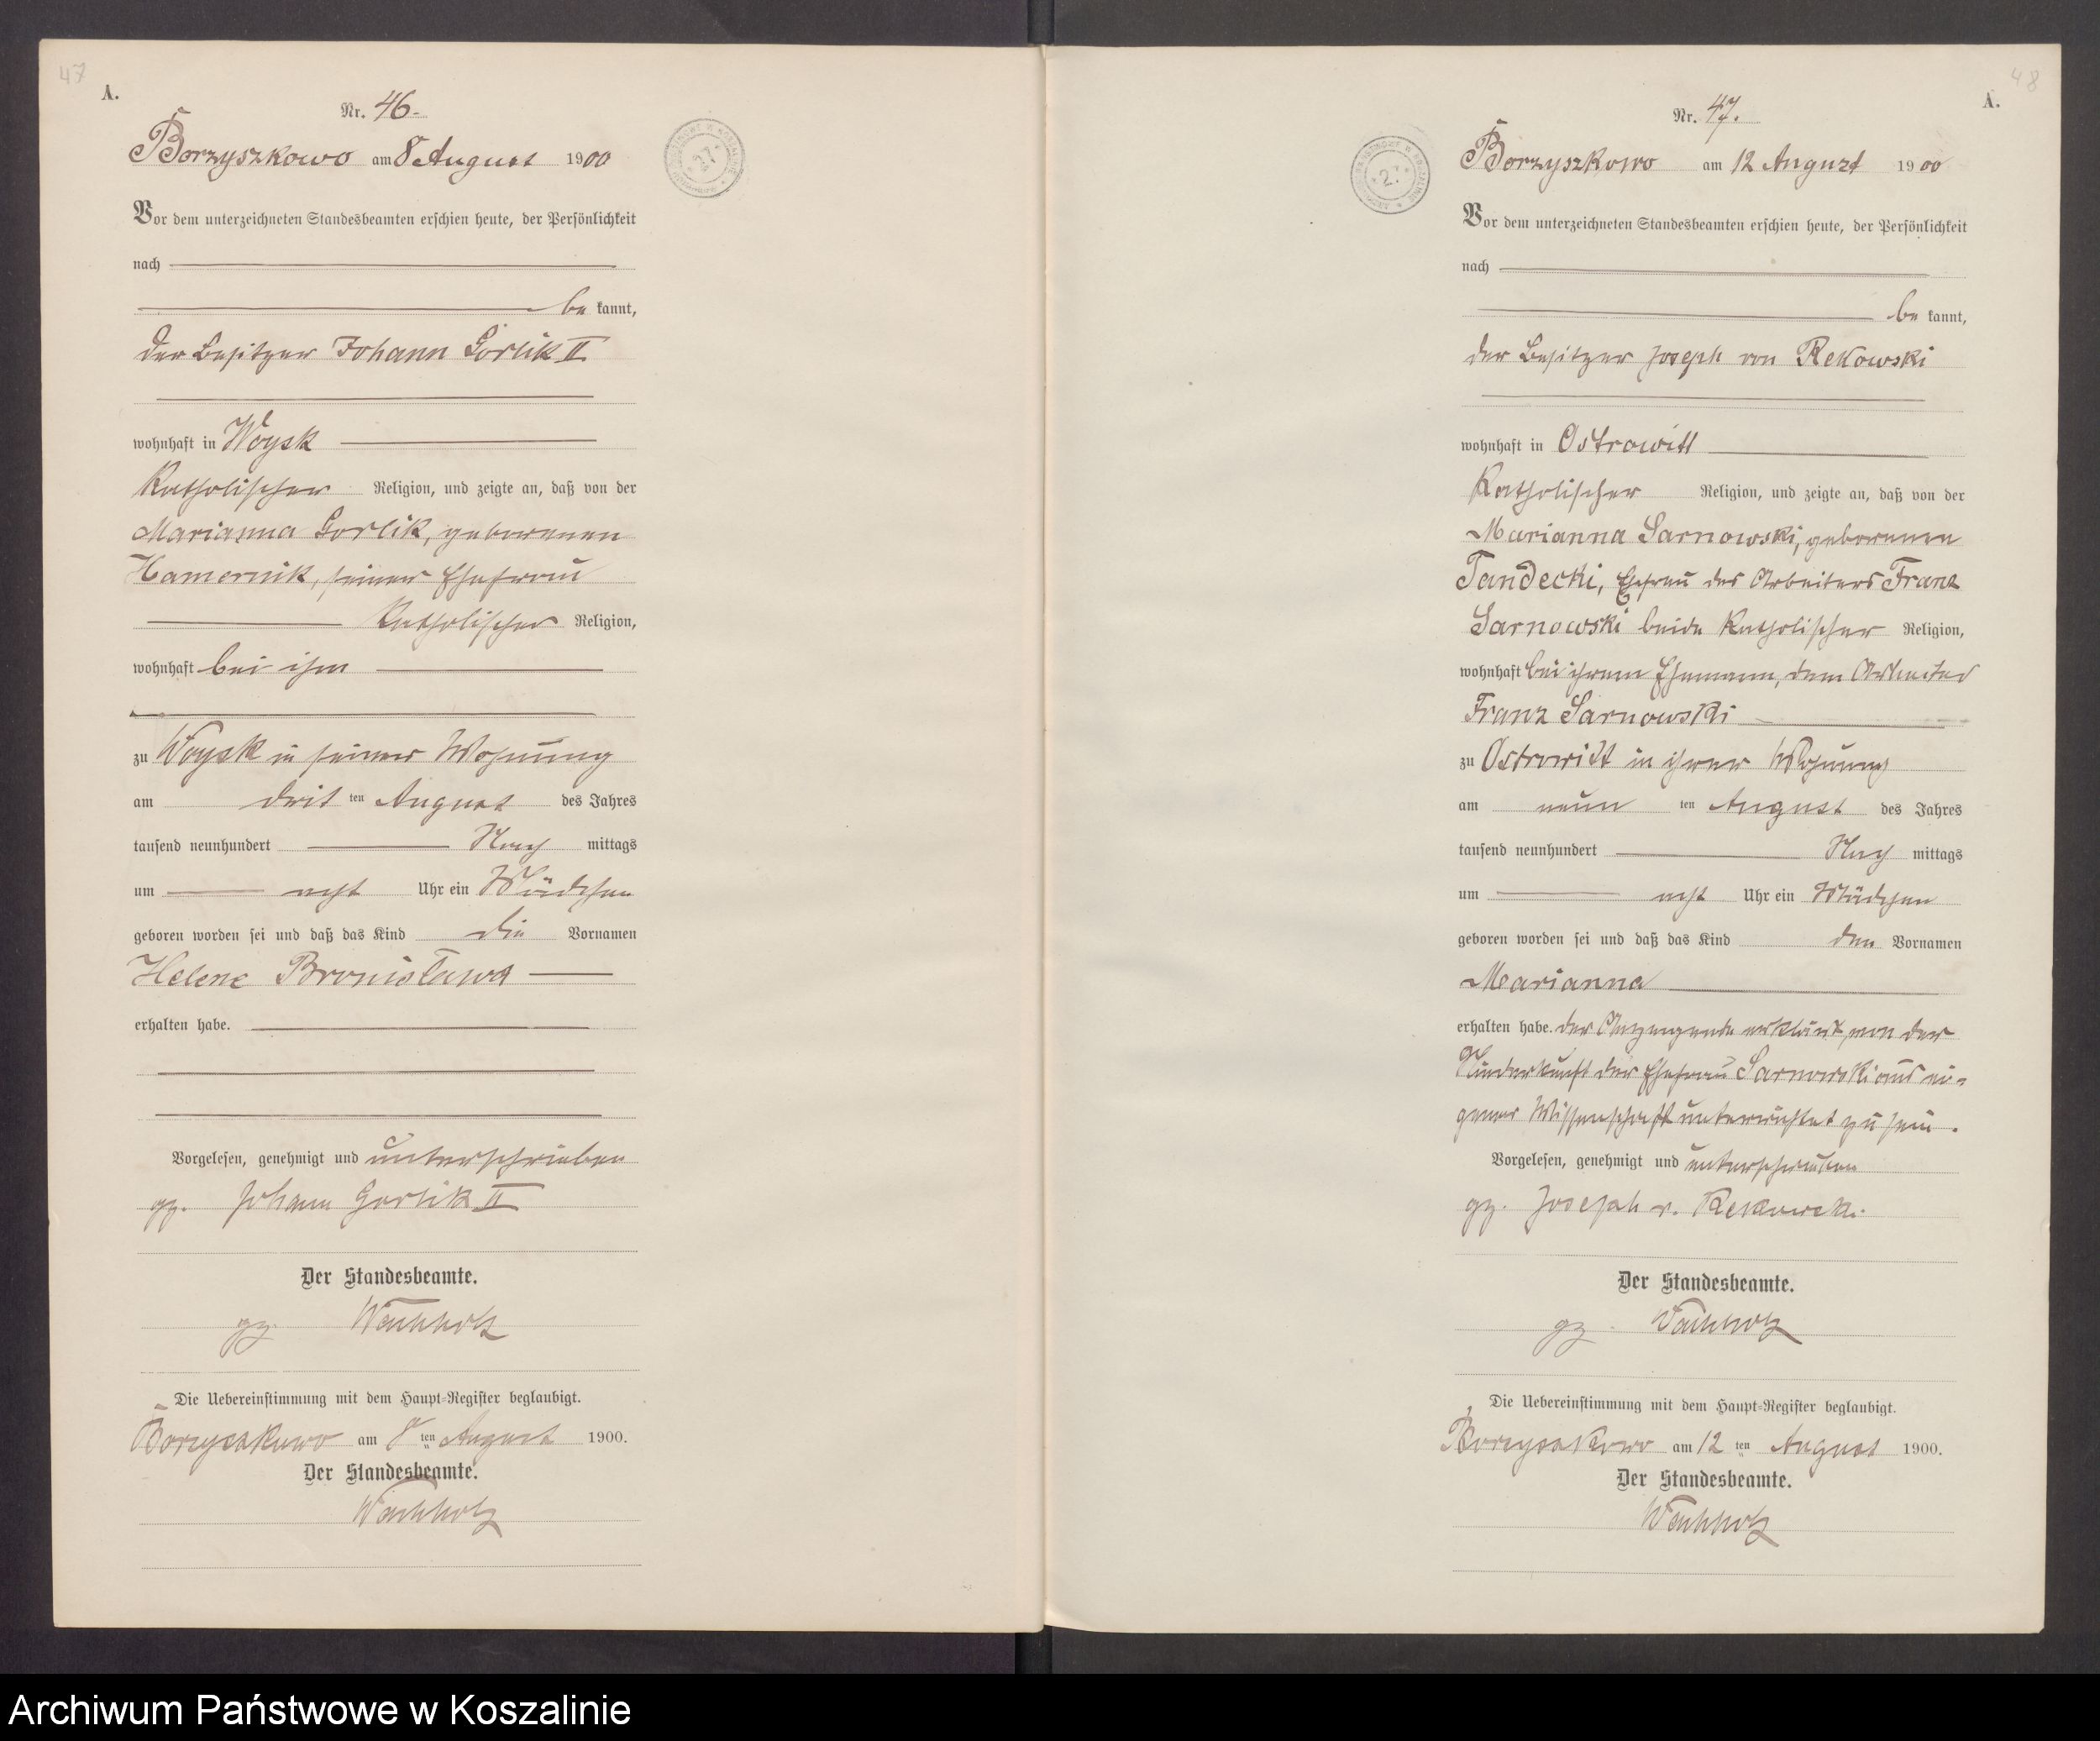 47
A.
Nr. 46.
Borzyszkowo am 8 August 1900
Vor dem unterzeichneten Standesbeamten erschien heute, der Persönlichkeit
nach
be kannt,
der Besitzer Johann Gorlik II
wohnhaft in Woysk
katholischer Religion, und zeigte an, daß von der
Marianna Gorlik, geborenen
Hamernik, seiner Ehefrau
katholischer Religion,
wohnhaft bei ihm
zu Woysk in seiner Wohnung
am drit ten August des Jahres
tausend neunhundert Nach mittags
um acht Uhr ein Mädchen
geboren worden sei und daß das Kind die Vornamen
Helene Bronislawa
erhalten habe.
Vorgelesen, genehmigt und unterschrieben
gz. Johann Gorlik II
Der Standesbeamte.
gz. Wachholz
Die Uebereinstimmung mit dem Haupt-Register beglaubigt.
Borzyszkowo am 8 ten August 1900.
Der Standesbeamte.
Wachholz
48
A.
Nr. 47.
Borzyszkowo am 12 August 1900
Vor dem unterzeichneten Standesbeamten erschien heute, der Persönlichkeit
nach
be kannt,
der Besitzer Joseph von Rekowski
wohnhaft in Ostrowitt
katholischer Religion, und zeigte an, daß von der
Marianna Sarnowski, geborenen
Tandecki, Ehefrau des Arbeiters Franz
Sarnowski beide katholischer Religion,
wohnhaft bei ihrem Ehemann, dem Arbeiter
Franz Sarnowski
zu Ostrowitt in ihrer Wohnung
am neun ten August des Jahres
tausend neunhundert Nach mittags
um acht Uhr ein Mädchen
geboren worden sei und daß das Kind den Vornamen
Marianna
erhalten habe. der Anzeigende erklärt, von der
Niederkunft der Ehefrau Sarnowski aus ei-
gener Wissenschaft unterrichtet zu sein.
Vorgelesen, genehmigt und unterschrieben
gz. Joseph v. Rekowski.
Der Standesbeamte.
gz. Wachholz
Die Uebereinstimmung mit dem Haupt-Register beglaubigt.
Borzyszkowo am 12 ten August 1900.
Der Standesbeamte.
Wachholz
Archiwum Państwowe w Koszalinie